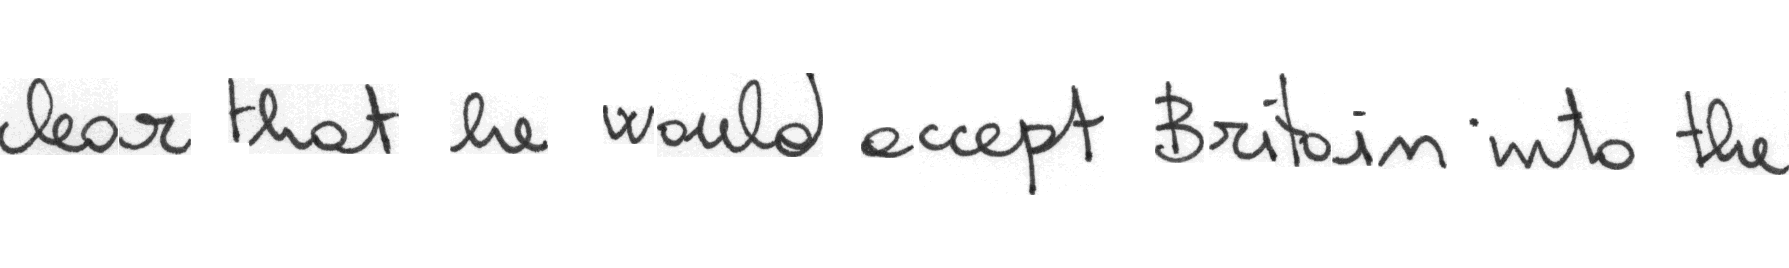 clear that he would accept Britain into the